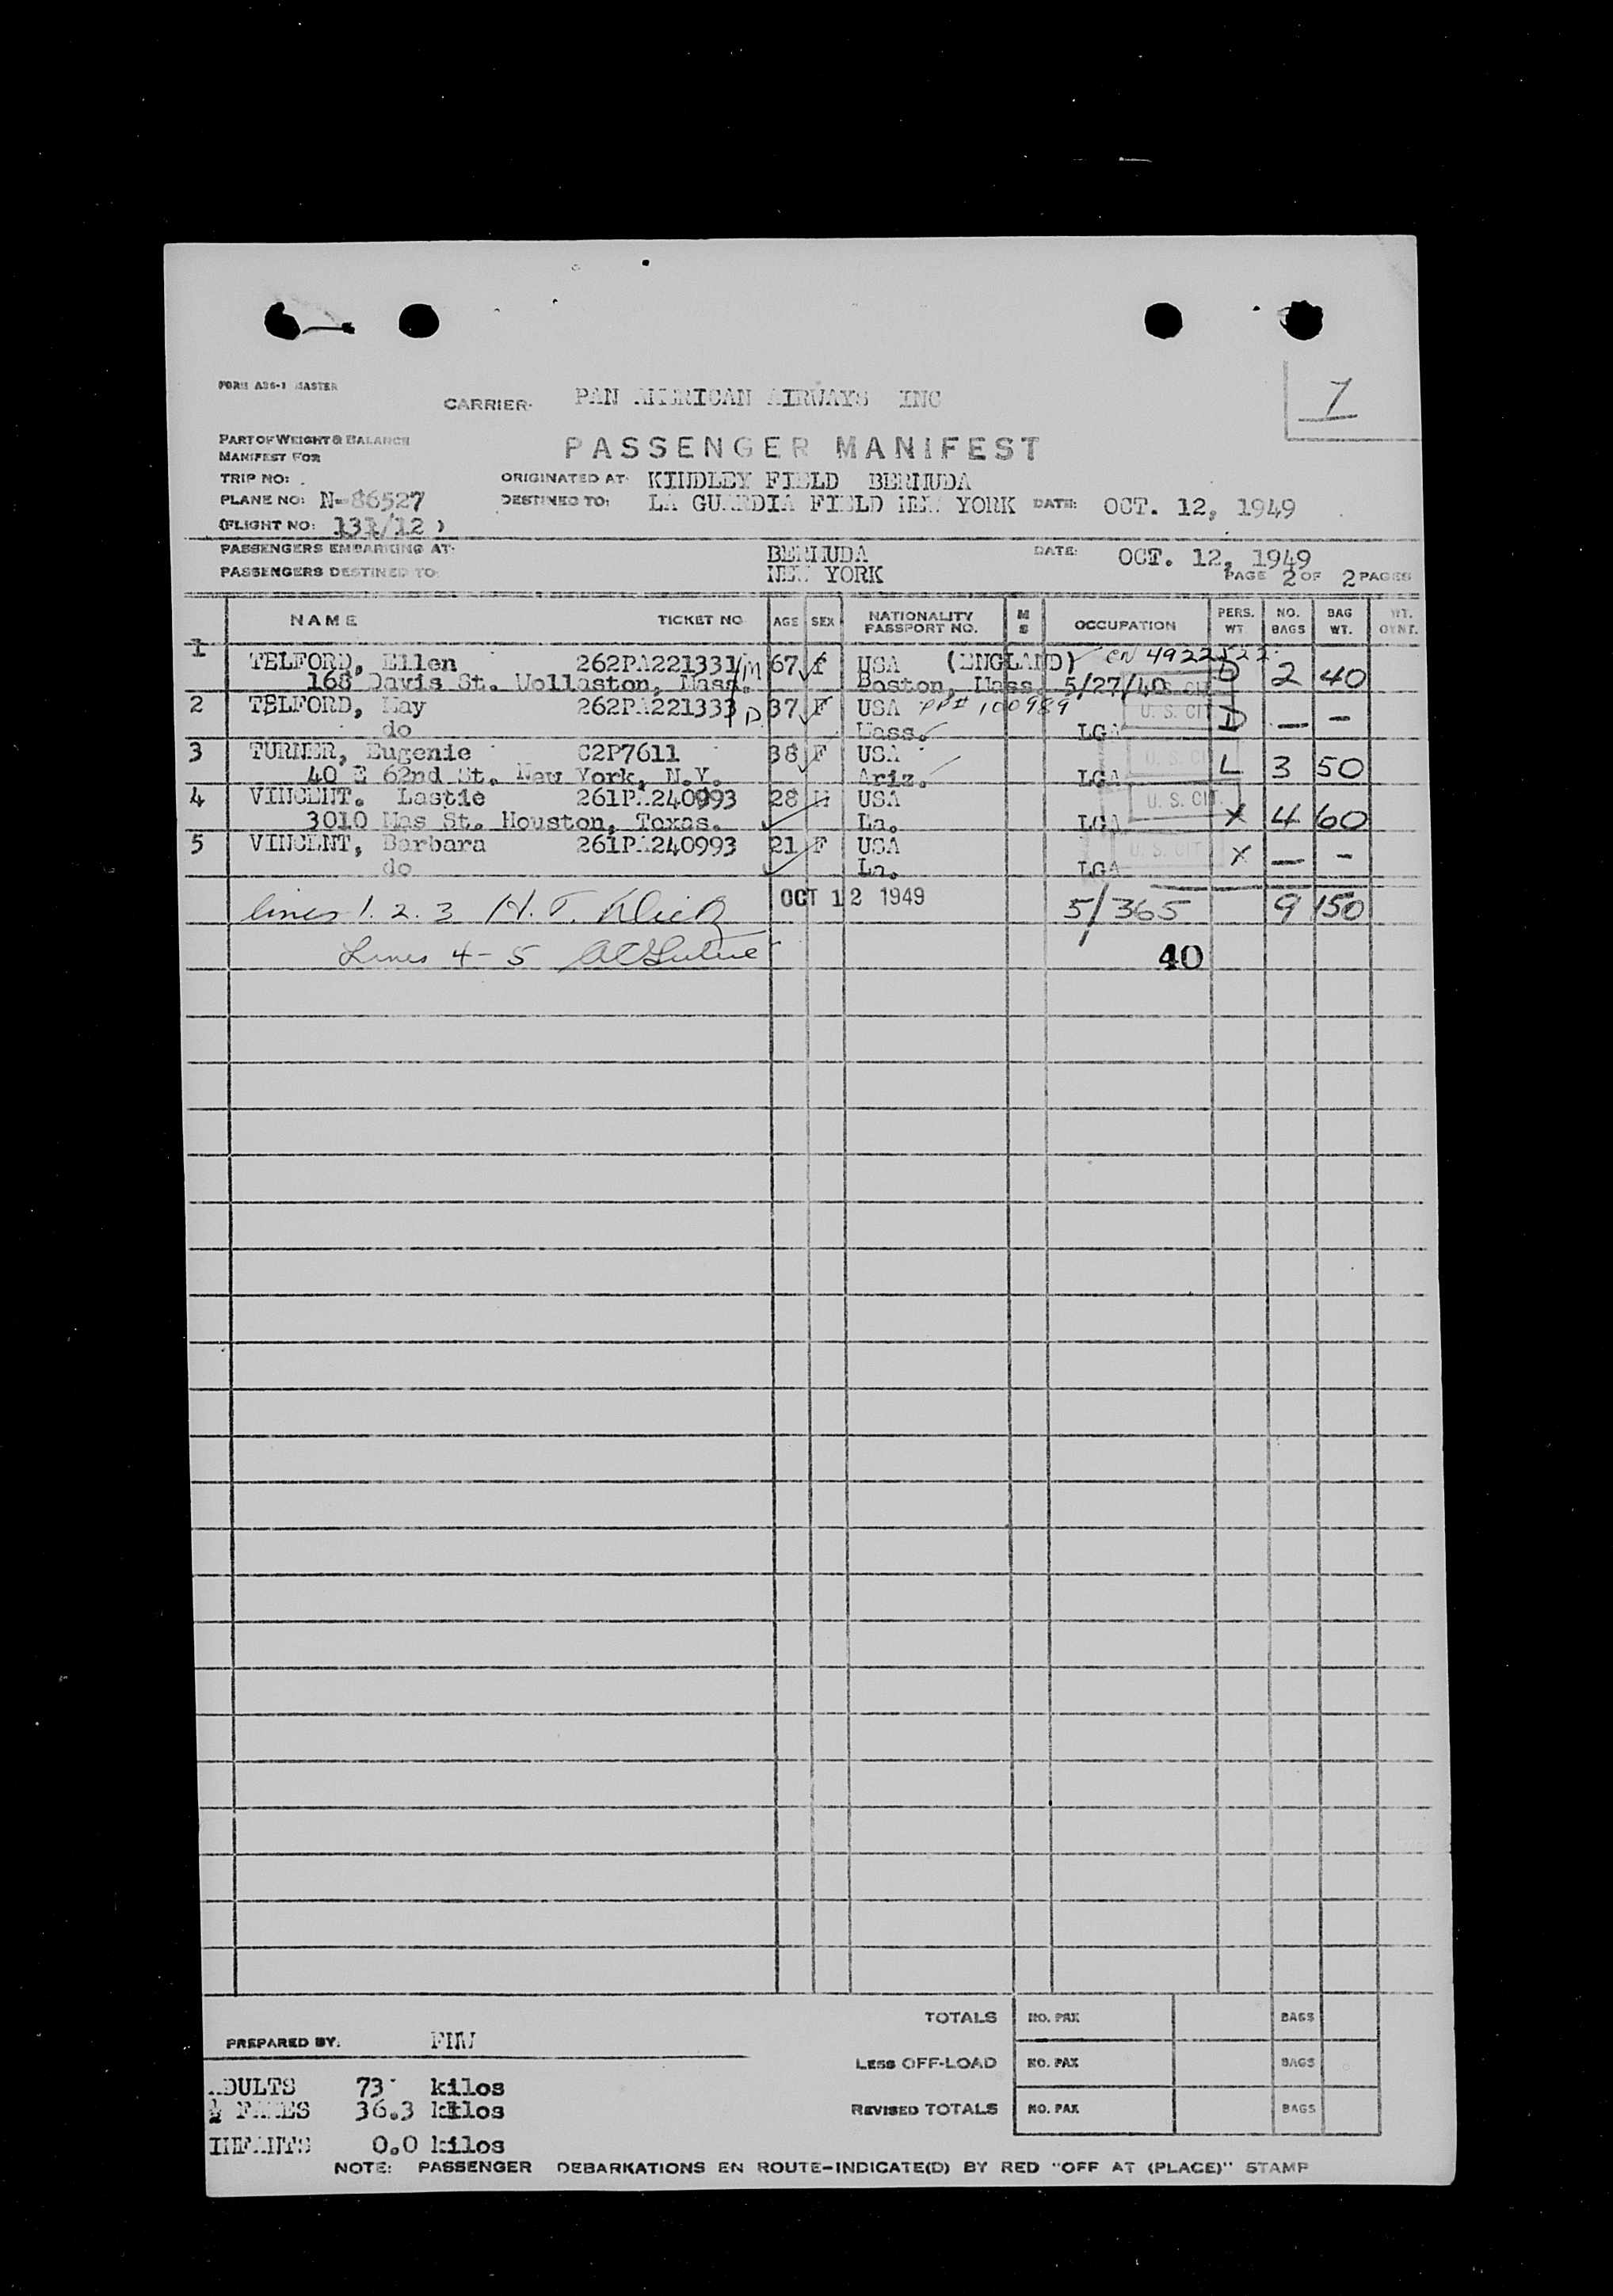 FORM A36-1 MASTER
CARRIER: PAN AMERICAN AIRWAYS INC
7
PART OF WEIGHT & BALANCE
MANIFEST FOR
PASSENGER MANIFEST
TRIP NO:
ORIGINATED AT: KINDLEY FIELD BERMUDA
PLANE NO: N-86527
DESTINED TO: LA GUARDIA FIELD NEW YORK DATE: OCT. 12, 1949
(FLIGHT NO: 131/12 )
PASSENGERS EMBARKING AT: BERMUDA DATE: OCT. 12, 1949
PASSENGERS DESTINED TO: NEW YORK PAGE 2 OF 2 PAGES
NAME TICKET NO AGE SEX NATIONALITY PASSPORT NO. M S OCCUPATION PERS. WT. NO. BAGS BAG WT. WT.
1 TELFORD, Ellen 262PA221331 M 67 F USA (ENGLAND) CN 4922522 D 2 40
168 Davis St. Wollaston, Mass. Boston, Mass 5/27/40
2 TELFORD, May 262PA221333 D 37 F USA PP# 100989 U. S. CIT D — –
do Mass. LGA
3 TURNER, Eugenie C2P7611 38 F USA U. S. CI L 3 50
40 E 62nd St. New York, N.Y. Ariz. LGA
4 VINCENT. Lastie 261PA240993 28 M USA U. S. CIT. X 4 60
3010 Mas St. Houston, Texas. La. LGA
5 VINCENT, Barbara 261PA240993 21 F USA U. S. CIT X — –
do La. LGA
lines 1. 2. 3 H. T. OCT 12 1949 5/365 9 150
Lines 4-5 40
TOTALS NO. PAX BAGS
PREPARED BY:
LESS OFF-LOAD NO. PAX BAGS
ADULTS 73 kilos
½ FARES 36.3 kilos
REVISED TOTALS NO. PAX BAGS
INFANTS 0.0 kilos
NOTE: PASSENGER DEBARKATIONS EN ROUTE–INDICATE(D) BY RED "OFF AT (PLACE)" STAMP